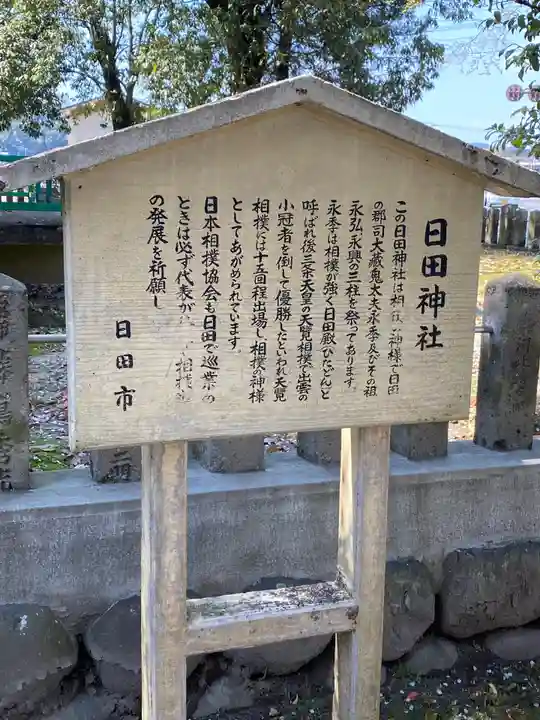 日田神社
この日田神社は相撲の神様で日田
の郡司大蔵鬼太夫永季及びその祖
永弘、永興の三柱を祭ってあります。
永季は相撲が強く日田殿(ひたどん)と
呼ばれ後三条天皇の天覧相撲で出雲の
小冠者を倒して優勝したといわれ天覧
相撲には十五回程出場し、相撲の神様
としてあがめられています。
日本相撲協会も日田で巡業の
ときは必ず代表が 相撲
の発展を祈願し
日田市